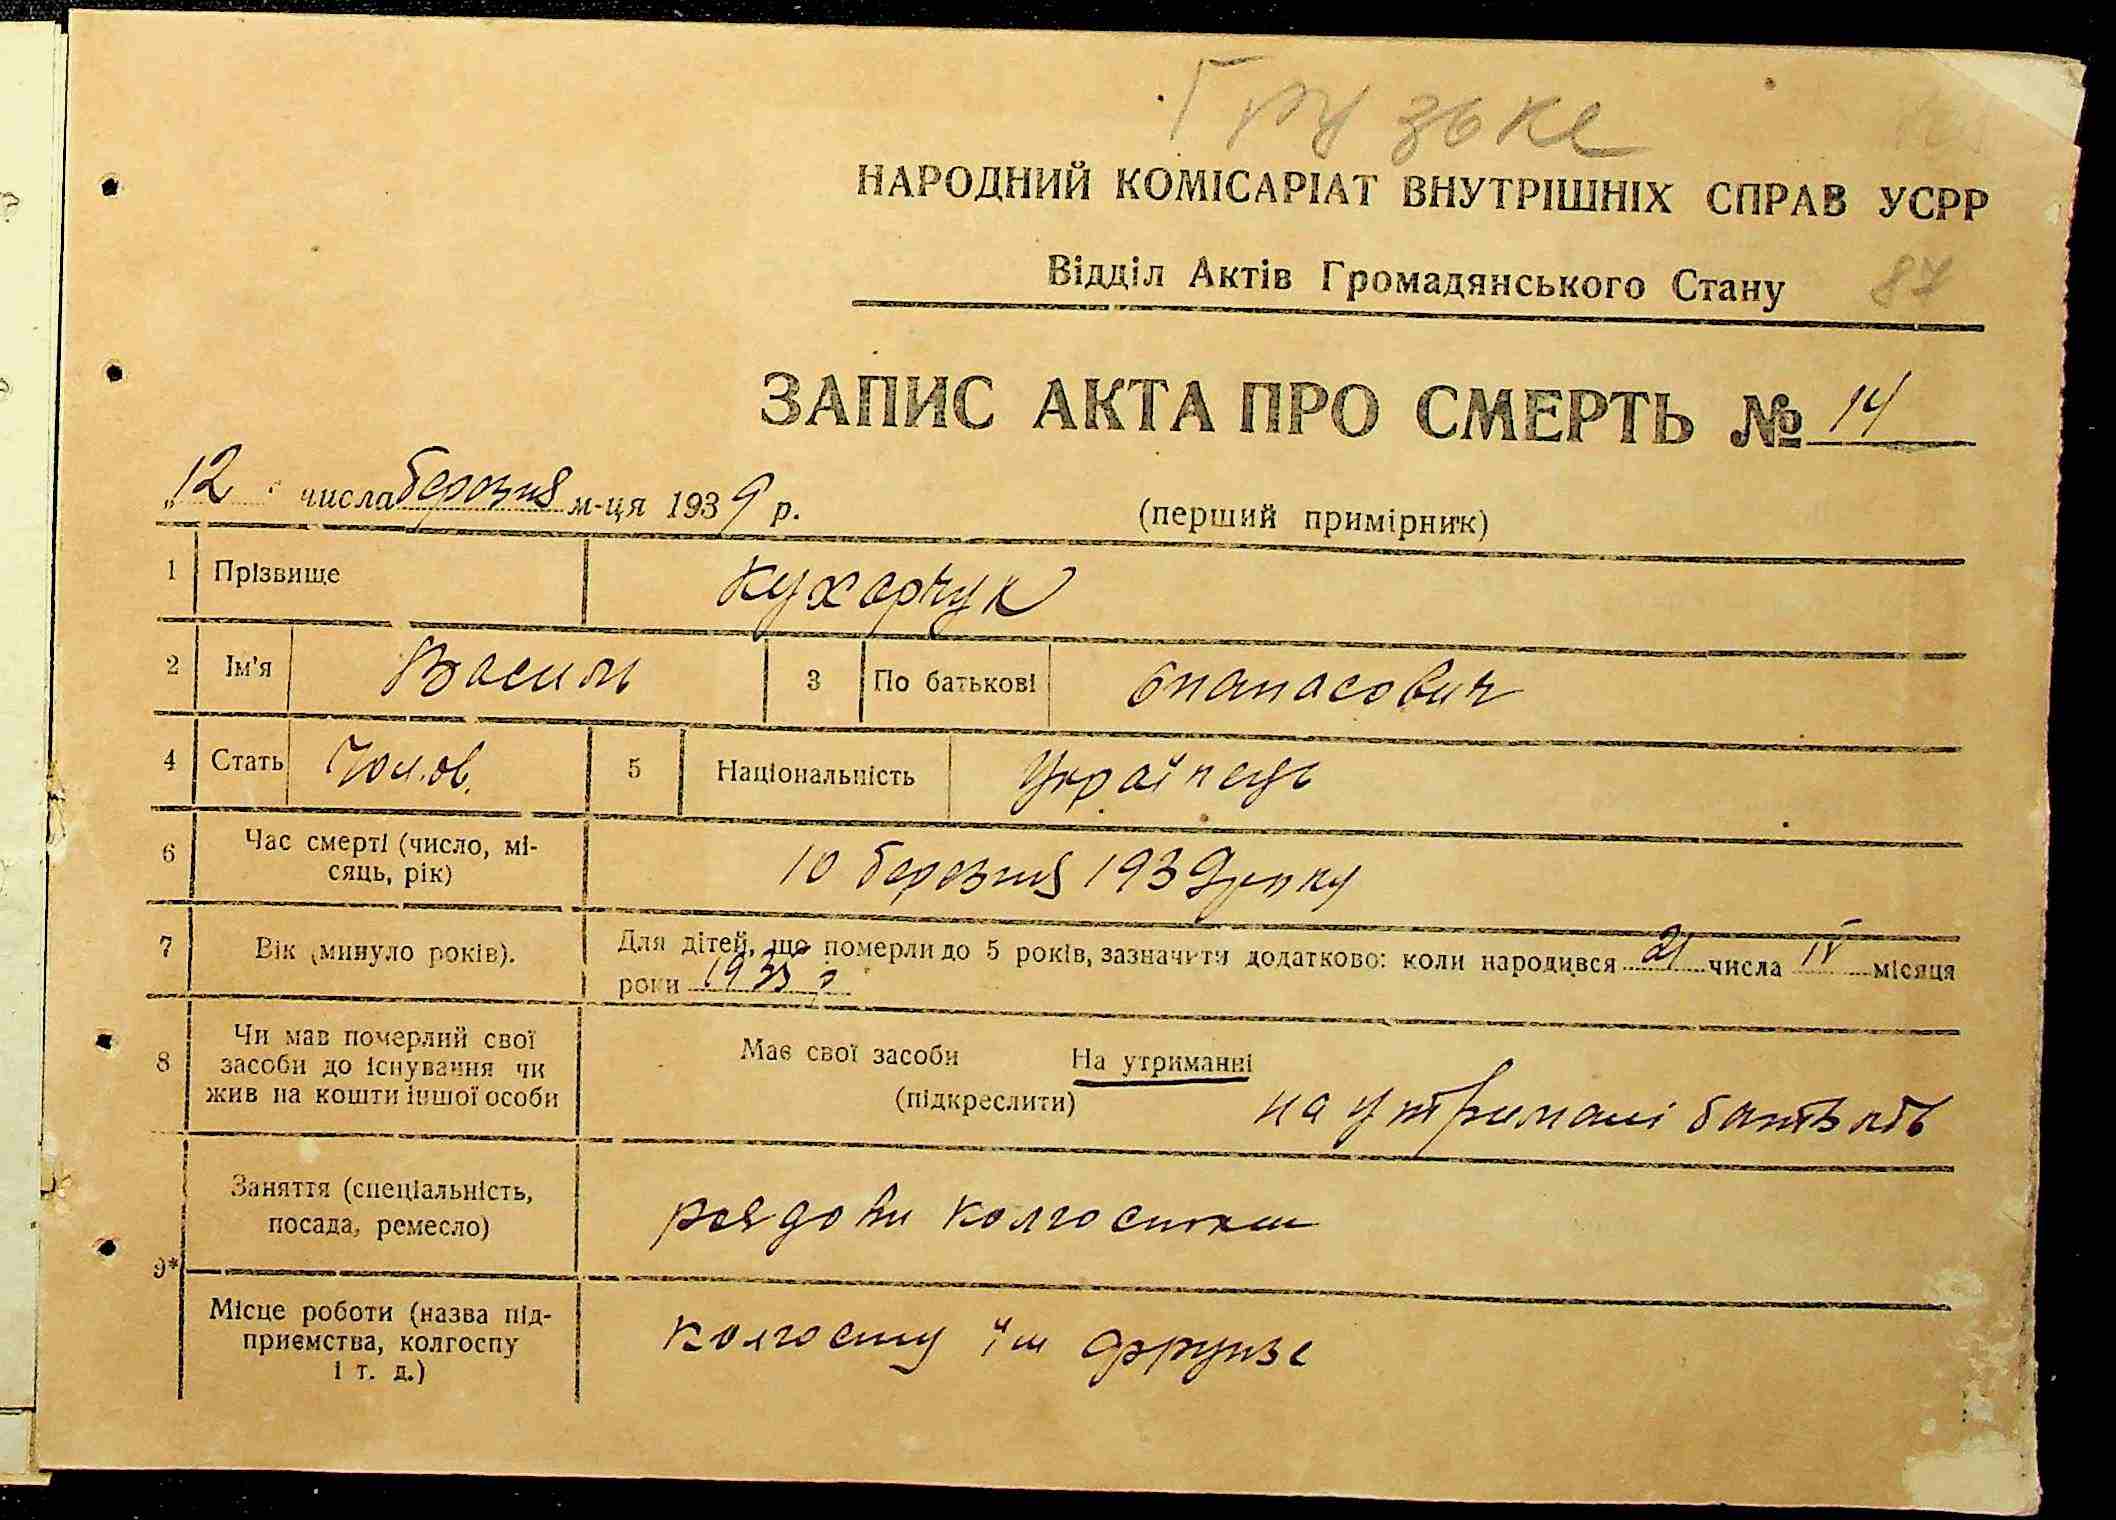 Грузьке
НАРОДНИЙ КОМІСАРІАТ ВНУТРІШНІХ СПРАВ УСРР
Відділ Актів Громадянського Стану 87
ЗАПИС АКТА ПРО СМЕРТЬ № 14
„12" числа березня м-ця 1939 р. (перший примірник)
1 Прізвище Кухарчук
2 Ім'я Василь 3 По батькові Опанасович
4 Стать Чолов. 5 Національність Українець
6 Час смерті (число, мі-
сяць, рік) 10 березня 1939 року
7 Вік (минуло років). Для дітей, що померли до 5 років, зазначити додатково: коли народився 21 числа IV місяця
роки
8 Чи мав померлий свої
засоби до існування чи
жив на кошти іншої особи
Має свої засоби На утриманні
(підкреслити) на утримані батьків
9* Заняття (спеціальність,
посада, ремесло) рядови
Місце роботи (назва під-
приємства, колгоспу
і т. д.) колгоспу ім Фрунзе